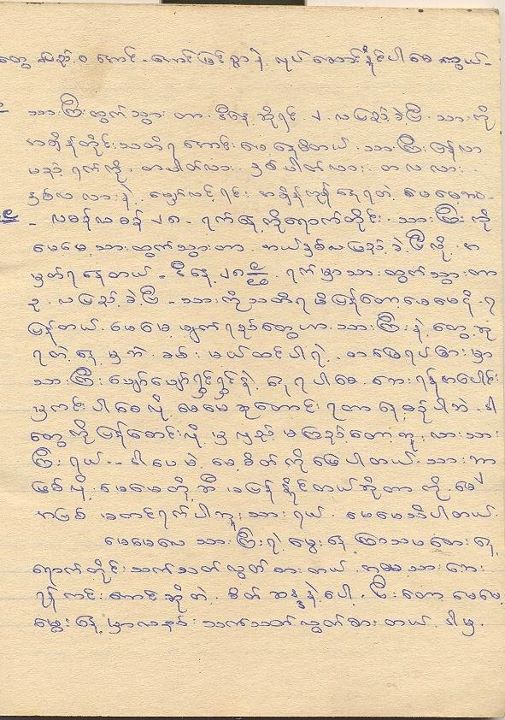 တွေ လည်း ဝ အောင် - ကောင်းခြင်းစွာနဲ့ လုပ် ဆောင် နိုင်ပါစေ ကွယ် -
သားကြီးထွက်သွား တာ ဒီနေ့ ဆိုရင် ၂ လ ပြည့် ခဲ့ပြီ သားကို
အချိန်တိုင်း သတိရ တောင်း မေ နေမိတယ် . သားကြီး ပြန်လာ
မည့် ရက်ကို . တပတ်လား . နှစ်ပတ်လား . တလ လား .
နှစ်လ လားနဲ့ မျှော်လင့်ရင်း
- လစန်းလစန်း ၂၈ - ရက်နေ့ ကိုရောက်တိုင်း သားကြီး ကို
မေမေ့ သားထွက်သွားတာ . ဘယ်နှစ်လပြည့် ခဲ့ ပြီလို့ . အ
မှတ်ရနေတယ် - ဒီနေ့ ၂၈ ရက် မှာသား ထွက် သွား တာ
၃ . လ ပြည့် ခဲ့ ပြီ - သားကိုသတိရ မိပြန်တော့ မေမေ ငို - ရ
ပြန်တယ် . မေမေ့ မျက်ရည်တွေဟာ . သားကြီး နဲ့ တွေ့ ဆုံ
ရတဲ့ နေ့ မှဘဲ . ခမ်း မယ်ထင်ပါရဲ့ .
သားကြီး ပျော်ပျော်ရွှင်ရွှင်နဲ့ နေ ရ ပါ စေ . ဘေး ရန်အပေါင်း
မှကင်း ပါစေ လို့ မေမေ ဆုတောင်း ရတာ နေ့ စဉ် ပါဘဲ . ဒါ
တွေ ကို ပြန်စောင်း လို့ မှ ကြည့် မကြည့် တော့ ဘူး လား သား
ကြီး ရယ် .. ဒါပေမဲ့ မေ စိတ် ကို ဖြေ ပါတယ် . သား ဘာ
ဖြစ် လို့ မေမေ တို့ ဆီ . မပြန် နိုင်တယ် ဆိုတာ ကို မေ
အပြစ် မတင်ရက် ပါဘူး သား ရယ် . မေမေသိပါတယ် .
မေမေလေ သားကြီးရဲ့ မွေး နေ့ ကြာသပတေး နေ့
ရောက်တိုင်း သက်သတ်လွတ် စားတယ် . ဒါမှ သား ဘေး
ရန် ကင်း အောင် ဆိုတဲ့ . စိတ် ဆန္ဒ နဲ့ ပေါ့ . ပြီး တော့ မေမေ့
မွေး နေ့ မှာလည်း သက်သတ်လွတ်စား တယ် . ဒါမှ .